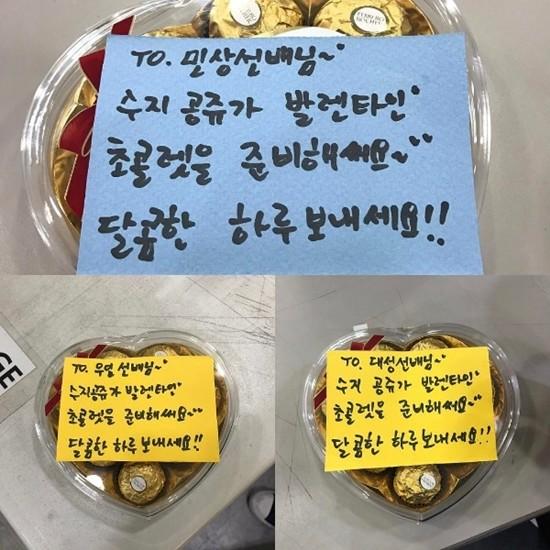 TO. 민상선배님~
수지 공쥬가 발렌타인
초콜렛을 준비해써요~
달콤한 하루보내세요!!
FERRERO
ROCHER
TO. 우영 선배님~
수지공쥬가 발렌타인
초콜렛을 준비해써요~
달콤한 하루보내세요!!
GE
TO. 대성선배님~
수지 공쥬가 발렌타인
초콜렛을 준비해써요~
달콤한 하루보내세요!!